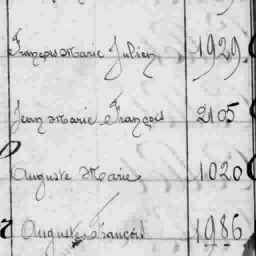 François Marie Julien 1929.
Jean Marie François 2105
Auguste Marie 1020
Auguste François 1986